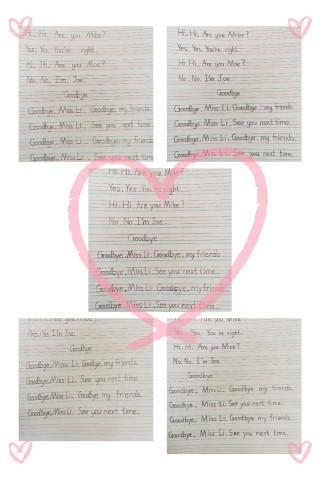 Hi. Hi. Are you Mike?
Yes. Yes. You're right.
Hi. Hi. Are you Moe?
No. No. I'm Joe.
Goodbye
Goodbye, Miss Li. Goodbye, my friends.
Goodbye, Miss Li. See you next time.
Goodbye, Miss Li. Goodbye, my friends.
Goodbye, Miss Li. See you next tim
Hi. Hi. Are you Mike?
Yes. Yes. You're right.
Hi. Hi. Are you Moe?
No. No. I'm Joe.
Goodbye
Goodbye, Miss Li. Goodbye, my friends.
Goodbye, Miss Li. See you next time.
Goodbye, Miss Li. Goodbye, my friends.
Goodbye, Miss Li. See you next time.
Hi. Hi. Are you Mike?
Yes. Yes. You're right.
Hi. Hi. Are you Mike?
No. No. I'm Joe.
Goodbye
Goodbye, Miss Li. Goodbye, my friends
Goodbye, Miss Li. See you next time.
Goodbye, Miss Li. Goodbye, my friends.
Goodbye, Miss Li. See you next time.
No. No. I'm Joe.
Goodbye
Goodbye, Miss Li. Goodbye, my friends.
Goodbye, Miss Li. See you next time.
Goodbye, Miss Li. Goodbye, my friends.
Goodbye, Miss Li. See you next time.
Are you Mike
Yes. Yes. You're right.
Hi. Hi. Are you Moe?
No. No. I'm Joe.
Goodbye
Goodbye, Miss Li. Goodbye my friends.
Goodbye, Miss Li. See you next time.
Goodbye, Miss Li. Goodbye my friends.
Goodbye, Miss Li. See you next time.